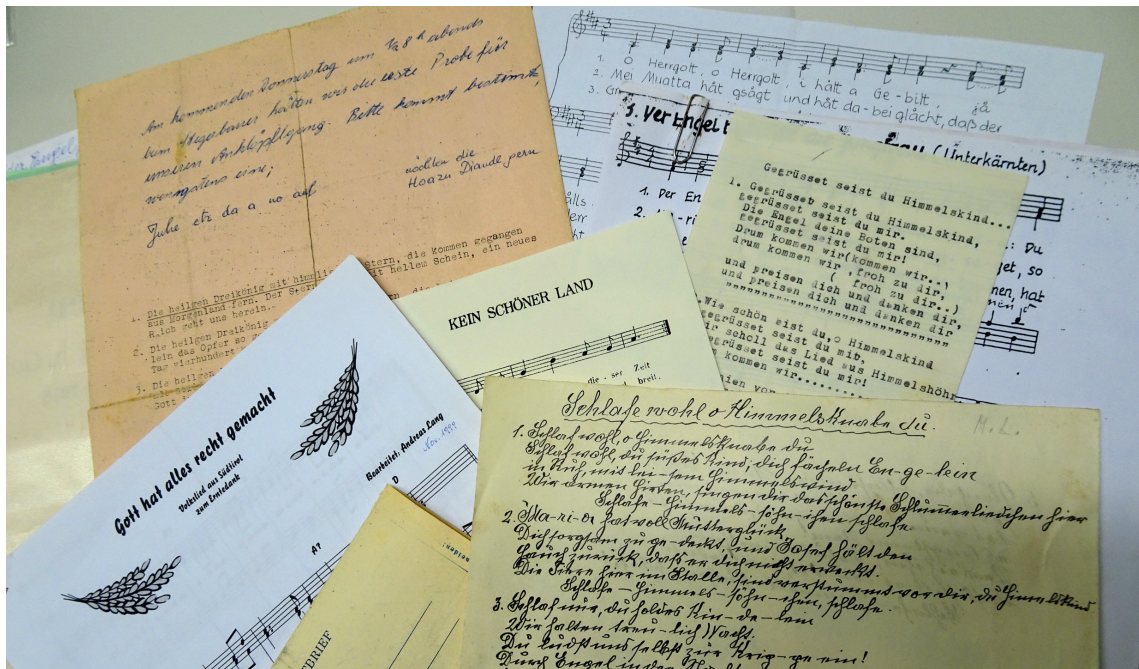 Am kommenden Donnerstag um ½ 8h abends
beim Stegerbauer hätten wir die erste Probe für
unseren Anklöpflgang. Bitte kommt bestimmt,
wenigstens eine;
möchten die
Juhe etz da a no auf
Hoazn Diandl gern
1. Die heilgen Dreikönig mit himmli Stern, die kommen gegangen
aus Morgenland fern. Der Stern mit hellem Schein, ein neues
Reich geht uns herein.
2. Die heilgen Dreikönig
lein das Opfer so
Tag vierhundert
3. Die heilgen
Gott
1. O Herrgott, o Herrgott, i hålt a Ge-bitt,
2. Mei Muatta håt gsågt und håt da-bei glåcht, daß der
3.
Engel
(Unterkärnten)
1. Der En
2.
: Du
et, so
en, hat
Gegrüsset seist du Himmelskind
1. Gegrüsset seist du Himmelskind...
gegrüsset seist du mir.
Die Engel deine Boten sind,
gegrüsset seist du mir!
Drum kommen wir(kommen wir...)
drum kommen wir ,froh zu dir,
froh zu dir,..)
und preisen dich und danken dir,
und preisen dich und danken dir
Wie schön bist du,o Himmelskind
gegrüsset seist du mir,
scholl das Lied aus Himmelshöhn
gegrüsset seist du mir!
kommen wir..........
KEIN SCHÖNER LAND
die - ser Zeit
breit,
Gott hat alles recht gemacht
Volkslied aus Südtirol
zum Erntedank
Bearbeitet: Andreas Lang
Nov. 1999
D
A7
Schlafe wohl o Himmelsknabe du.
M. L.
1. Schlaf wohl, o Himmelsknabe du
Schlaf wohl, du süßes Kind; dich fächeln En-ge-lein
in Ruh, mit lei-sem Himmelswind
Wir armen Hirten, singen dir das schönste Schlummerliedchen hier
Schlafe - Himmels - söhn - chen schlafe.
2. Ma-ri-a hat voll Mutterglück
Dich sorgsam zu ge-deckt, und Josef hält den
Hauch zurück, daß er dich nicht erweckt.
Die Tiere hier im Stalle, sind verstummt vor dir, du Himmelskind
Schlafe - Himmels - söhn - chen, schlafe.
3. Schlaf nur, du holdes Kin-de-lein
Wir halten treu-lich Wacht.
Du ludst uns selbst zur Krip-pe ein!
Durch Engel in der
TBRIEF